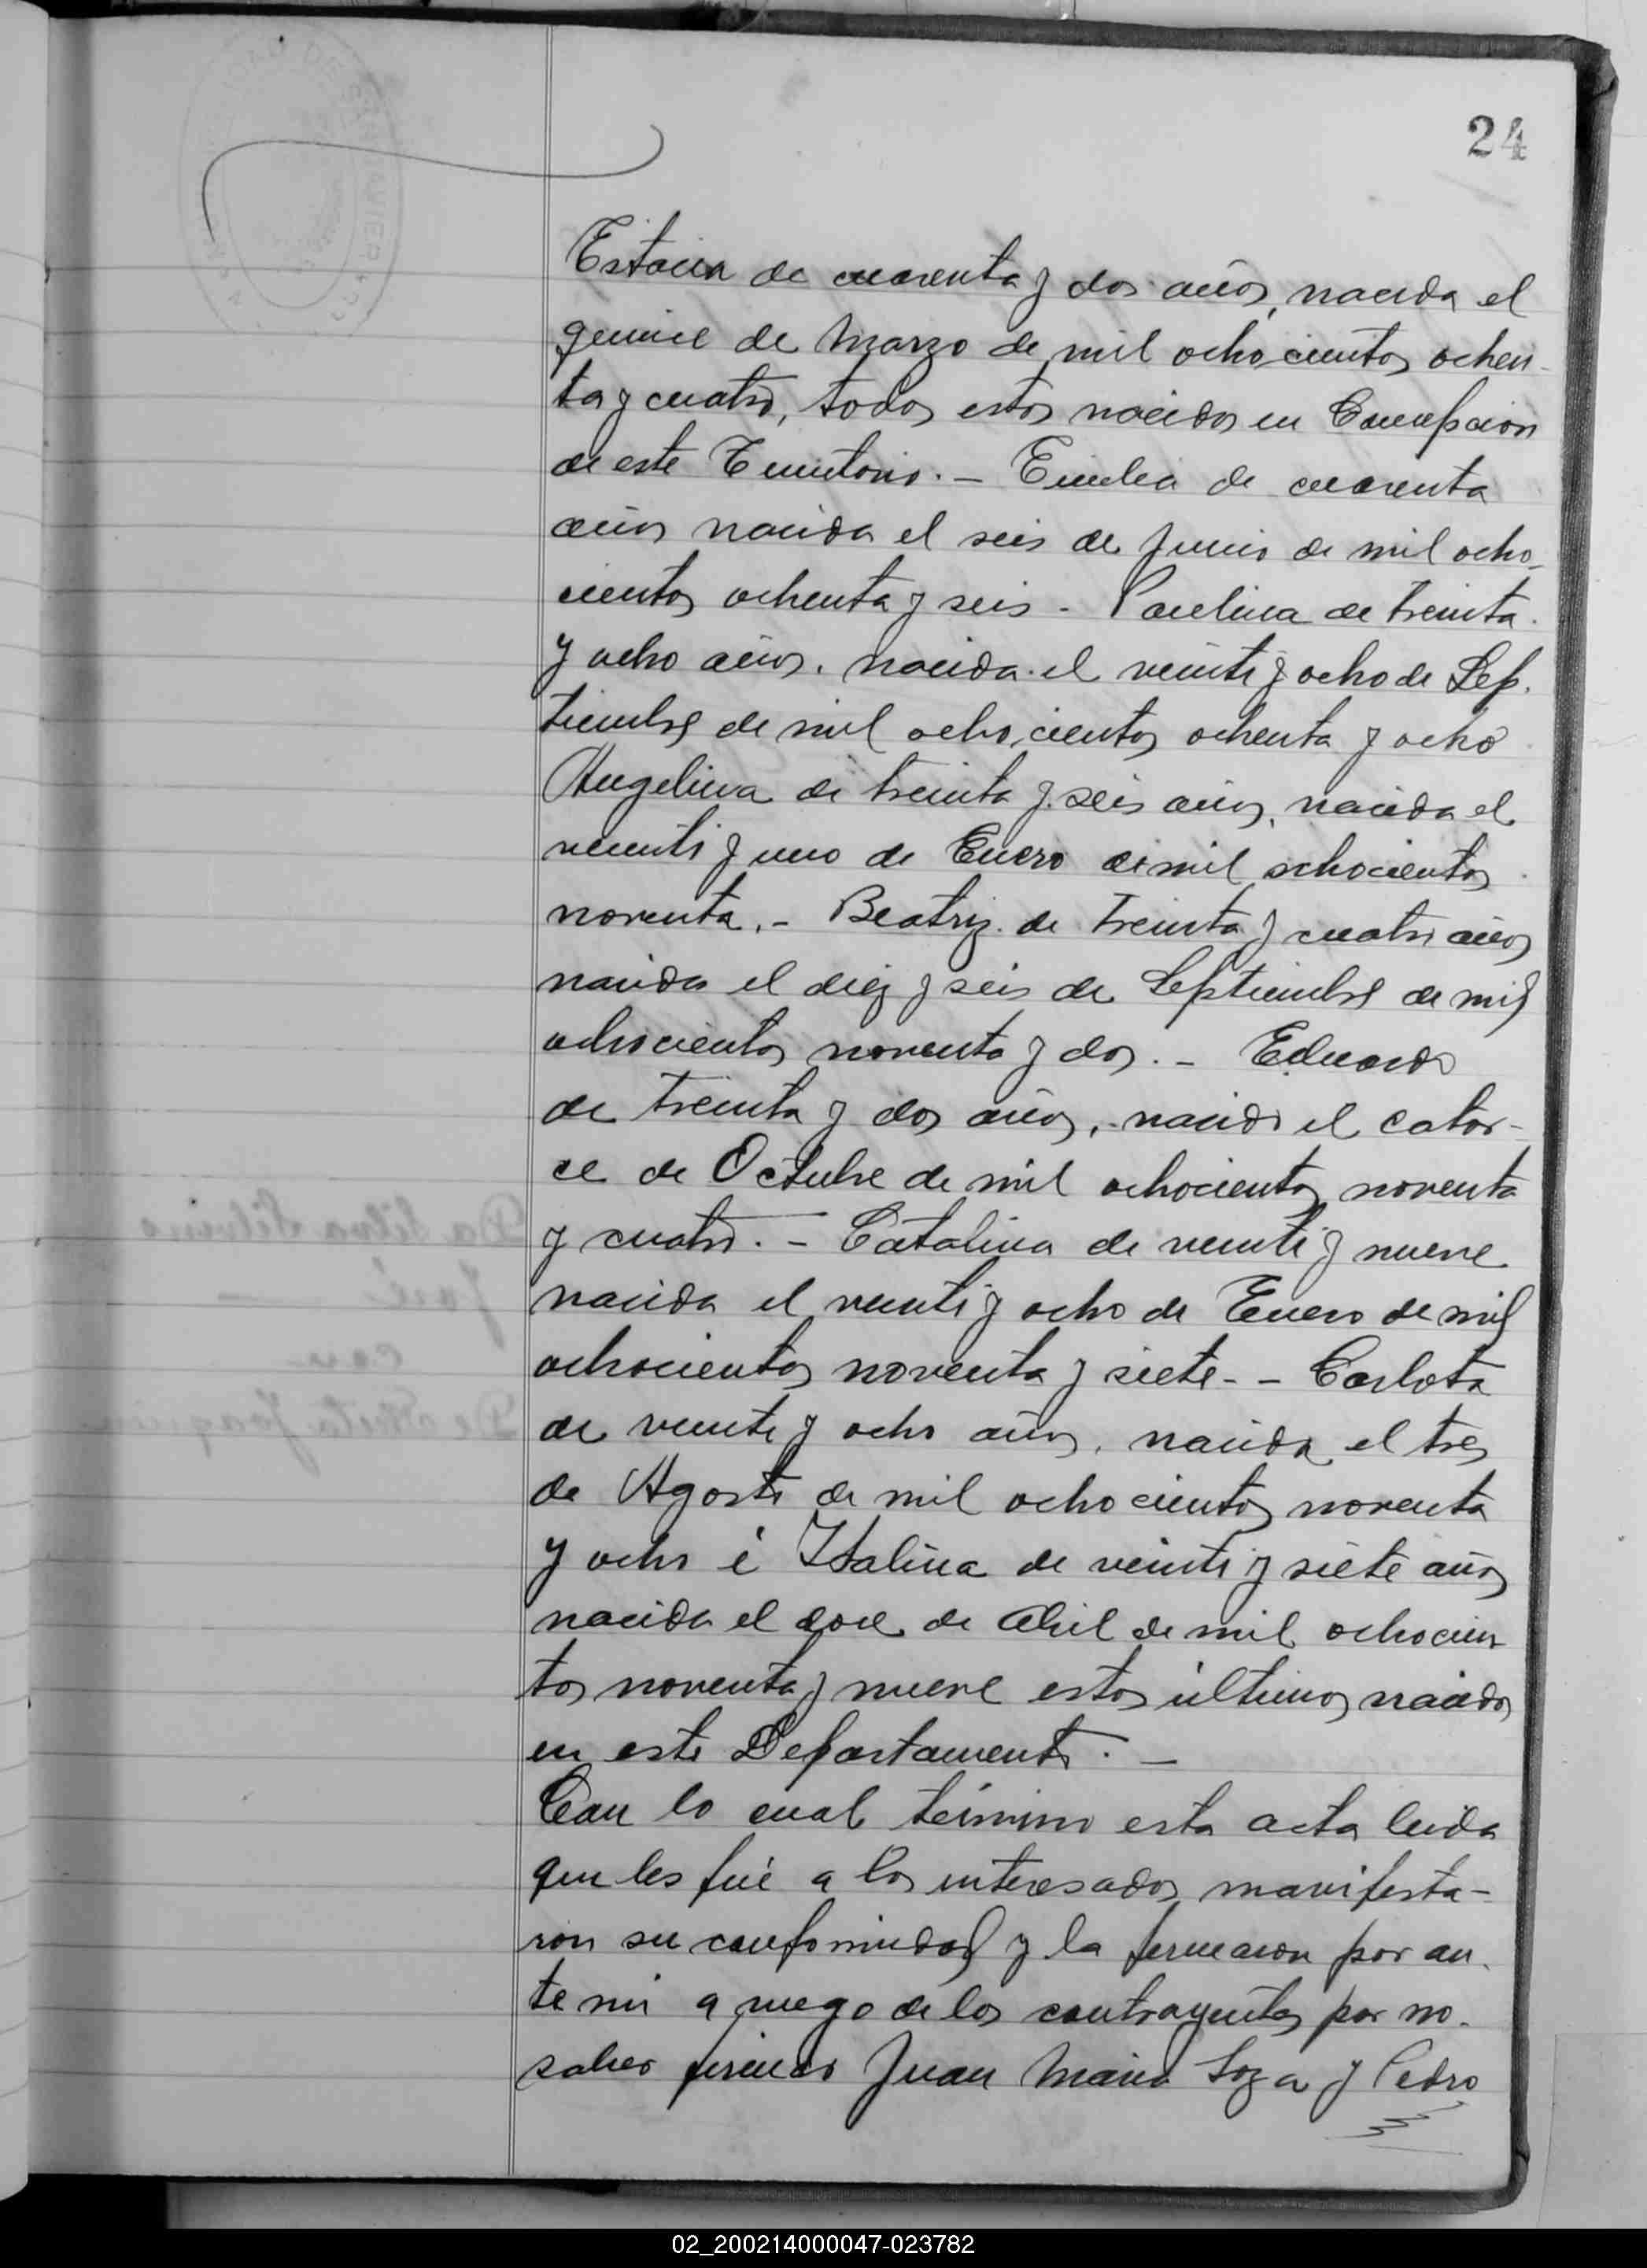 24
Estacia de cuarenta y dos años, nacida el
quince de Marzo de mil ochocientos ochen-
ta y cuatro, todos estos nacidos en Concepcion
de este Territorio. - Emilia de cuarenta
años nacida el seis de Junio de mil ocho-
cientos ochenta y seis - Paulina de treinta
y ocho años, nacida el veinte y ocho de Sep-
tiembre de mil ochocientos ochenta y ocho
Angelina de treinta y seis años, nacida el
veinte y uno de Enero de mil ochocientos
noventa. - Beatriz de treinta y cuatro años
nacida el diez y seis de Septiembre de mil
ochocientos noventa y dos. - Eduardo
de treinta y dos años, nacido el cator-
ce de Octubre de mil ochocientos noventa
y cuatro. - Catalina de veinte y nueve
nacida el veinte y ocho de Enero de mil
ochocientos noventa y siete - - Carlota
de veinte y ocho años, nacida el tres
de Agosto de mil ochocientos noventa
y ocho é Italina de veinte y siete años
nacida el doce de Abril de mil ochocien
tos noventa y nueve estos últimos nacidos
en este Departamento. -
Con lo cual término esta acta leida
que les fué a los interesados, manifesta-
ron su conformidad y la firmaron por an-
te mi a ruego de los contrayentes por no
saber firmar Juan Maria Soza y Pedro
02_200214000047-023782